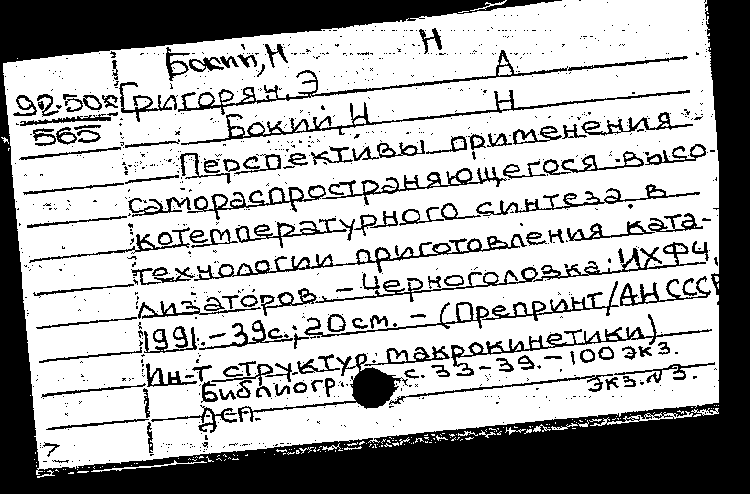 Бокий, Н Н
92-50к Григорян, Э А
565 Бокий, Н Н
Перспективы применения
самораспространяющегося высо-
котемпературного синтеза в
технологии приготовления ката-
лизаторов. - Черноголовка: ИХФЧ,
1991. - 39с.; 20см. - (Препринт/АН СССР
Ин-т структур. макрокинетики)
Библиогр. с. 33-39. - 100 экз.
Экз. N 3.